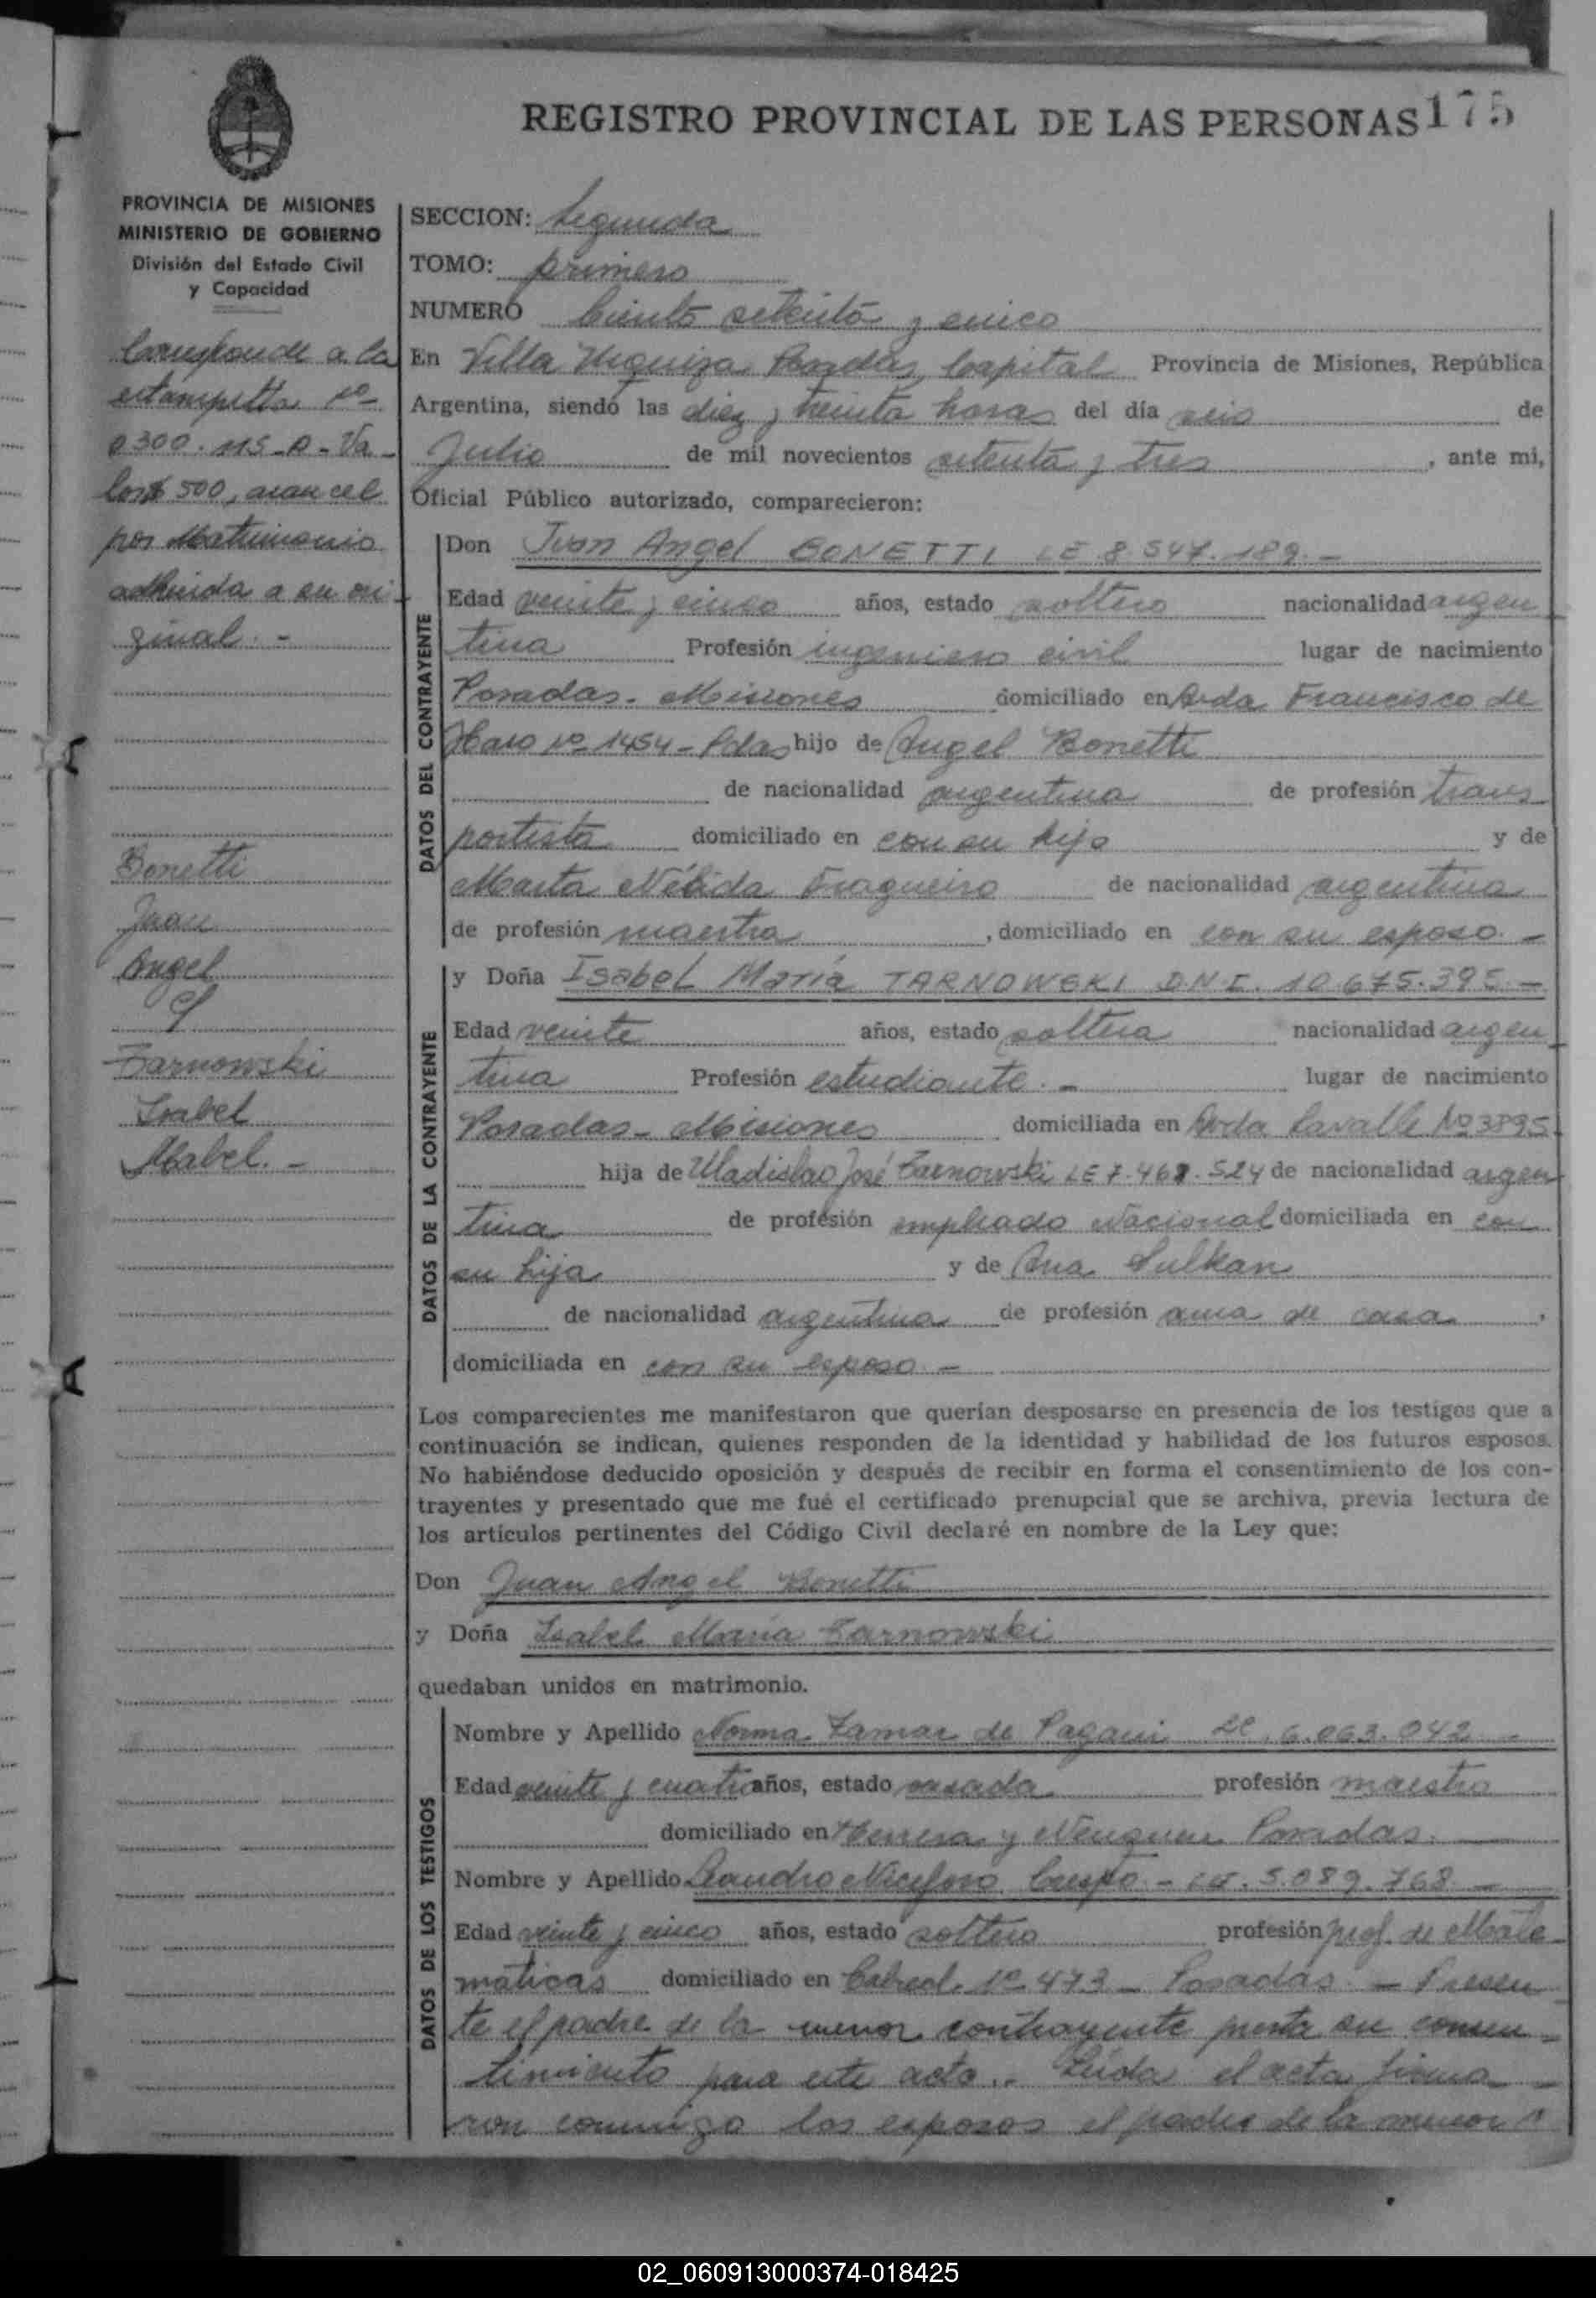 REGISTRO PROVINCIAL DE LAS PERSONAS 175
PROVINCIA DE MISIONES
MINISTERIO DE GOBIERNO
División del Estado Civil
y Capacidad
Corresponde a la
estampilla nº
0300.115-A-Va-
lor $ 500, arancel
por Matrimonio
adherida a su ori-
ginal.-
Bonetti
Juan
Angel
y
Tarnowski
Isabel
Mabel.-
SECCION: Segunda
TOMO: primero
NUMERO Ciento setenta y cinco
En Villa Urquiza Posadas, Capital Provincia de Misiones, República
Argentina, siendo las diez y treinta horas del día seis de
Julio de mil novecientos setenta y tres, ante mi,
Oficial Público autorizado, comparecieron:
DATOS DEL CONTRAYENTE
Don Juan Angel BONETTI LE 8.547.189.-
Edad veinte y cinco años, estado soltero nacionalidad argen
tina Profesión ingeniero civil lugar de nacimiento
Posadas. Misiones domiciliado en Avda Francisco de
Haro nº 1454 - Pdas hijo de Angel Bonetti
de nacionalidad argentina de profesión trans
portista domiciliado en con su hijo y de
Marta Nélida Fragueiro de nacionalidad argentina
de profesión maestra, domiciliado en con su esposo.-
DATOS DE LA CONTRAYENTE
y Doña Isabel María TARNOWSKI D.N.I. 10.675.395.-
Edad veinte años, estado soltera nacionalidad argen
tina Profesión estudiante.- lugar de nacimiento
Posadas - Misiones domiciliada en Avda Lavalle Nº 3895
hija de Uladislao José Tarnowski LE 7.468.524 de nacionalidad argen
tina de profesión empleado Nacional domiciliada en con
su hija y de Ana Sulkan
de nacionalidad argentina de profesión ama de casa.
domiciliada en con su esposo.-
Los comparecientes me manifestaron que querían desposarse en presencia de los testigos que a
continuación se indican, quienes responden de la identidad y habilidad de los futuros esposos.
No habiéndose deducido oposición y después de recibir en forma el consentimiento de los con-
trayentes y presentado que me fué el certificado prenupcial que se archiva, previa lectura de
los artículos pertinentes del Código Civil declaré en nombre de la Ley que:
Don Juan Angel Bonetti
y Doña Isabel María Tarnowski
quedaban unidos en matrimonio.
DATOS DE LOS TESTIGOS
Nombre y Apellido Norma Tamar de Pagani LC. 6.063.042 -
Edad veinte y cuatro años, estado casada profesión maestra
domiciliado en Herrera y Neuquen Posadas.
Nombre y Apellido Leandro Niceforo Crespo - LE. 5.089.768 -
Edad veinte y cinco años, estado soltero profesión prof. de Mate
maticas domiciliado en Cabred nº 473 - Posadas - Presen
te el padre de la menor contrayente presta su consen-
timiento para este acto.. Leida el acta firma-
ron conmigo los esposos el padre de la menor
02_060913000374-018425